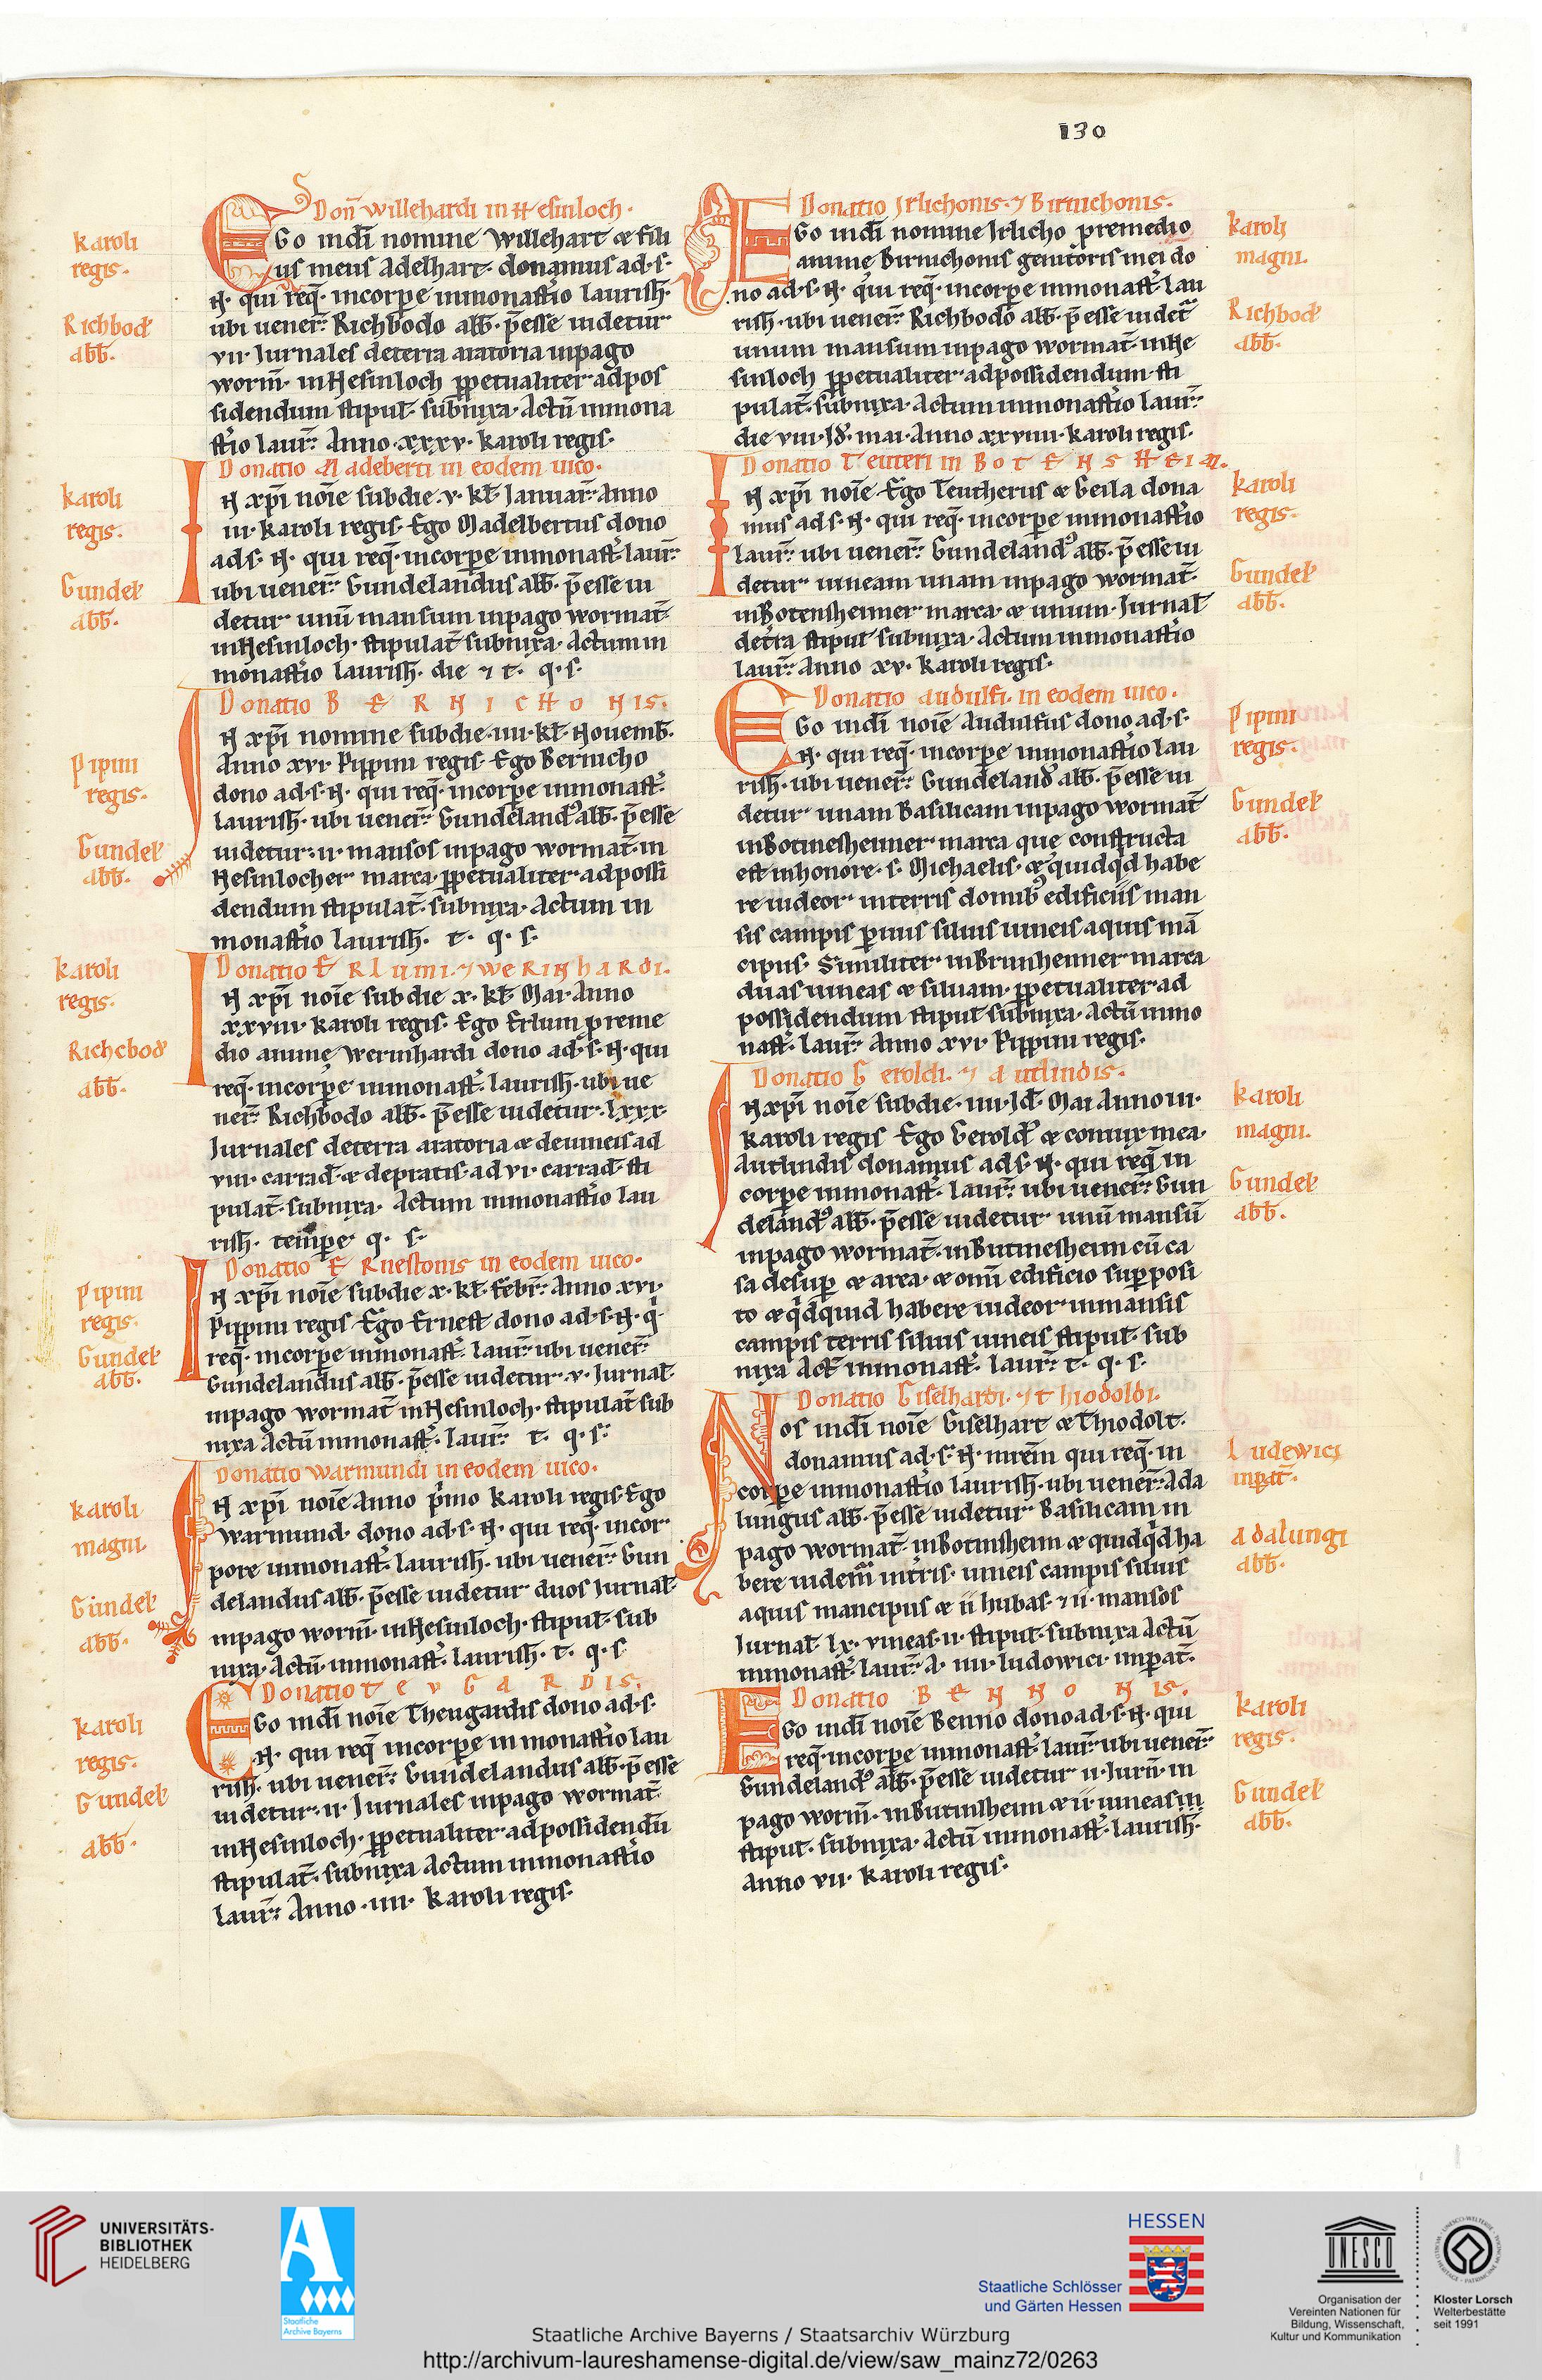 130
Don̄ Willehardi in Hesinloch.
Ego in dī nomine Willehart & fili
us meus Adelhart. donamus ad. s.
N. qui req̄. in corpe in monast̄io laurish̄.
ubi uener̄. Richbodo abb̄. p̄esse uidetur
vii. Iurnales de terra aratoria in pago
worm̄. in Hesinloch ppetualiter ad pos
sidendum stipul̄. subnixa. Actū in mona
st̄io laur̄. Anno. xxxv. karoli regis.
karoli
regis.
Richbod̄
abb̄.
Donatio Nadeberti in eodem uico.
In xp̄i noīe sub die. v. kl̄. Ianuar̄. Anno
iii. karoli regis. Ego Madelbertus dono
ad s. N. qui req̄. in corpe in monast̄. laur̄.
ubi uener̄. Gundelandus abb̄. p̄esse ui
detur unū mansum in pago wormat̄.
in Hesinloch. stipulat̄ subnixa. Actum in
monast̄io laurish̄. die ⁊ t. q. s.
karoli
regis.
Gundel̄
abb̄.
Donatio BERNICHONIS.
In xp̄i nomine sub die. iiii. kl̄. Nouemb̄.
Anno xvi. Pippini regis. Ego Bernicho
dono ad. s. N. qui req̄. in corpe in monast̄.
laurish̄. ubi uener̄. Gundeland⁹ abb̄. p̄esse
uidetur. ii. mansos in pago wormat̄. in
Hesinlocher marca. ppetualiter ad possi
dendum stipulat̄. subnixa. Actum in
monast̄io laurish̄. t. q. s.
Pipini
regis.
Gundel̄
abb̄.
Donatio ERlumi. ⁊ weRinhaRdi.
In xp̄i noīe sub die x. kl̄. Mai. Anno
xxviii. karoli regis. Ego Erlum p reme
dio animę Werinhardi dono ad. s. N. qui
req̄. in corpe in monast̄. laurish̄. ubi ue
ner̄. Richbodo abb̄. p̄esse uidetur. lxxx.
Iurnales de terra aratoria & de uineis ad
viii. carrad̄. & de pratis. ad vi. carrad̄. sti
pulat̄. subnixa. Actum in monast̄io lau
rish̄. tempe q. s.
karoli
regis.
Richcbod̄
abb̄.
Donatio ERnestonis in eodem uico.
In xp̄i noīe sub die x. kl̄. febr̄. Anno xvi.
Pippini regis Ego Ernest dono ad. s. N. q̇
req̄. in corpe in monast̄. laur̄. ubi uener̄.
Gundelandus abb̄. p̄esse uidetur. v. Iurnal̄.
in pago wormat̄ in Hesinloch. stipulat̄ sub
nixa Actū in monast̄. laur̄. t. q. s.
Pipini
regis.
Gundel̄
abb̄.
Donatio warmundi in eodem uico.
In xp̄i noīe Anno ṗmo karoli regis. Ego
Warmund. dono ad. s. N. qui req̄. in cor
pore in monast̄. laurish̄. ubi uener̄. Gun
delandus abb̄. p̄esse uidetur duos Iurnal̄.
in pago worm̄. in Hesinloch. stipul̄. sub
nixa. Actū in monast̄. laurish̄. t. q. s.
karoli
magni.
Gundel̄
abb̄.
Donatio TEVGARDIS.
Ego in dī noīe Theugardis dono ad. s.
N. qui req̄ in corpe in monast̄io lau
rish̄. ubi uener̄. Gundelandus abb̄. p̄esse
uidetur. ii. Iurnales in pago wormat̄.
in Hesinloch. ppetualiter ad possidendū
stipulat̄. subnixa Actum in monast̄io
laur̄. Anno. iiii. karoli regis.
karoli
regis.
Gundel̄
abb̄
Donatio Irlichonis. ⁊ Birnichonis.
Ego in dī nomine Irlicho p remedio
anime Birnichonis genitoris mei do
no ad. s. N. qui req̄. in corpe in monast̄. lau
rish̄. ubi uener̄. Richbodo abb̄. p̄esse uidet̄
unum mansum in pago wormat̄. in He
sinloch ppetualiter ad possidendum sti
pulat̄. subnixa. Actum in monast̄io laur̄.
die viii. Id̄. mai. Anno xxviiii. karoli regis.
karoli
magni.
Richbod̄
abb̄.
Donatio Teuteri in BOTENSHEIM.
In xp̄i noīe Ego Teutherus & Geila dona
mus ad s. N. qui req̄. in corpe in monast̄io
laur̄. ubi uener̄. Gundeland⁹ abb̄. p̄esse ui
detur uineam unam in pago wormat̄.
in Botensheimer marca. & unum. Iurnal̄
de t̄ra stipul̄ subnixa. Actum in monast̄io
laur̄. Anno xv. karoli regis.
karoli
regis.
Gundel̄
abb̄.
Donatio audulfi. in eodem uico.
Ego in dī noīe Audulfus dono ad. s.
N. qui req̄. in corpe in monast̄io lau
rish̄. ubi uener̄. Gundeland⁹ abb̄. p̄esse ui
detur unam Basilicam in pago wormat̄
in Botinesheimer marca que constructa
est in honore. s. Michaelis. & quidqd habe
re uideor in terris domib⁹ edificiis man
sis campis p̄uiis siluis uineis aquis mā
cipiis. Similiter in Brunheimer marca
duas uineas & siluam. ppetualiter ad
possidendum stipul̄ subnixa. Actū in mo
nast̄. laur̄. Anno xvi. Pippini regis.
Pipini
regis.
Gundel̄
abb̄.
Donatio Geroldi. ⁊ autlindis.
In xp̄i noīe sub die. iiii. Id̄. Mai Anno iii.
karoli regis Ego Gerold⁹ & coniux mea.
Autlindis donamus ad s. N. qui req̄ in
corpe in monast̄. laur̄. ubi uener̄. Gun
deland⁹ abb̄. p̄esse uidetur unū mansū
in pago wormat̄. in Butinesheim cū ca
sa desup & area. & omī edificio sup posi
to & qdquid habere uideor in mansis
campis terris siluis uineis stipul̄. sub
nixa Act̄ in monast̄. laur̄. t. q. s.
karoli
magni.
Gundel̄
abb̄.
Donatio Giselhardi. ⁊ Thiodoldi.
Nos in dī noīe Giselhart & Thiodolt.
donamus ad. s. N. mr̄em qui req̄. in
corpe in monast̄io laurish̄. ubi uener̄. Ada
lungus abb̄. p̄esse uidetur Basilicam in
pago wormat̄ in Botinsheim & quidqd ha
bere uidem̄ in t̄ris. uineis campis siluis
aquis mancipiis & ii hubas. ⁊ ii. mansos
Iurnal̄ lx. vineas. ii. stipul̄. subnixa Actū
in monast̄. laur̄. A. iiii. ludowici. imp̄at̄.
Ludewici
inpat̄.
adalungi
abb̄.
Donatio BENNONIS.
Ego in dī noīe Benno dono ad. s. N. qui
req̄. in corpe in monast̄. laur̄. ubi uener̄.
Gundeland⁹ abb̄. p̄esse uidetur ii. Iurn̄. in
pago worm̄. in Butinsheim & ii. uineas in
stipul̄. subnixa. Actū in monast̄. laurish̄.
Anno vii. karoli regis.
karoli
regis.
Gundel̄
abb̄.
UNIVERSITÄTS-
BIBLIOTHEK
HEIDELBERG
Staatliche
Archive Bayerns
HESSEN
Staatliche Schlösser
und Gärten Hessen
UNESCO
Organisation der
Vereinten Nationen für
Bildung, Wissenschaft,
Kultur und Kommunikation
Kloster Lorsch
Welterbestätte
seit 1991
Staatliche Archive Bayerns / Staatsarchiv Würzburg
http://archivum-laureshamense-digital.de/view/saw_mainz72/0263